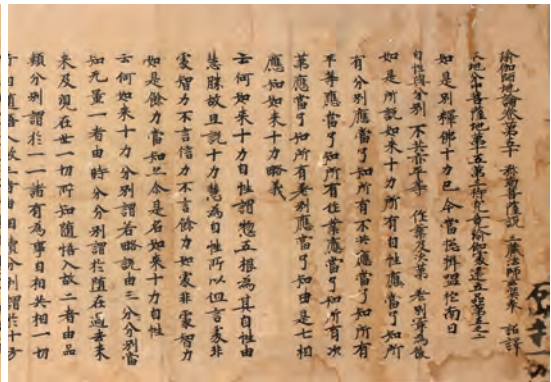 瑜伽師地論卷第五十 弥勒菩薩說 三藏法師玄奘奉 詔譯
本地分中菩薩地第五第三持究竟瑜伽處建立品第五之二
如是別釋佛十力已今當捴辯嗢柁南曰
自性與分別 不共亦平等 作業及次第 差別寔為後
如是所說如來十力所有自性應當了知所
有分別應當了知所有不共應當了知所有
平等應當了知所有作業應當了知所有次
第應當了知所有差別應當了知由是七相
應知如來十力略義
云何如來十力自性謂惣五根為其自性由
慧勝故且說十力慧為自性所以但言處非
處智力不言信力不言餘力如處非處智力
如是餘力當知亦尒是名如來十力自性
云何如來十力分別謂若略說由三分分別當
知无量一者由時分分別謂於墮在過去未
來及現在世一切所知隨悟入故二者由品
類分別謂於一一諸有為事自相共相一切